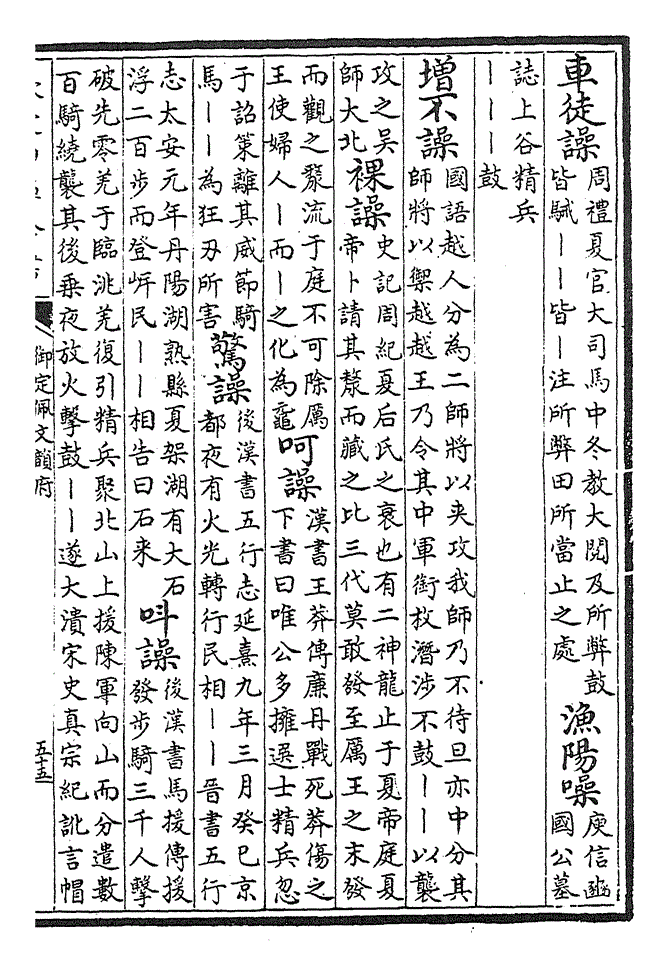 車徒譟
周禮夏官大司馬中冬教大閱及所弊鼓
皆駴丨丨皆丨注所弊田所當止之處
漁陽噪
庾信豳
國公墓
誌上谷精兵
丨丨丨鼓
增不譟
國語越人分為二師將以夾攻我師乃不待旦亦中分其
師將以禦越越王乃令其中軍銜枚潛涉不鼓丨丨以襲
攻之吳
師大北
裸譟
史記周紀夏后氏之衰也有二神龍止于夏帝庭夏
帝卜請其漦而藏之比三代莫敢發至厲王之末發
而觀之漦流于庭不可除厲
王使婦人丨而丨之化為黿
呵譟
漢書王莽傳廉丹戰死莽傷之
下書曰唯公多擁選士精兵忽
于詔策離其威節騎
馬丨丨為狂刃所害
驚譟
後漢書五行志延熹九年三月癸巳京
都夜有火光轉行民相丨丨晉書五行
志太安元年丹陽湖熟縣夏架湖有大石
浮二百步而登岍民丨丨相告曰石來
叫譟
後漢書馬援傳援
發步騎三千人擊
破先零羌于臨洮羌復引精兵聚北山上援陳軍向山而分遣數
百騎繞襲其後乘夜放火擊鼓丨丨遂大潰宋史真宗紀訛言帽
御定佩文韻府
五十五